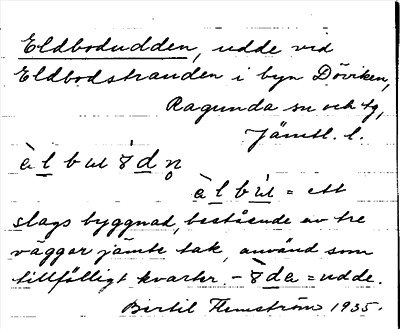 Eldbodudden, udde vid
Eldbodstranden i byn Döviken,
Ragunda sn och tg,
Jämtl. l.
àl bul ðdn̥
àl bùl = ett
slags byggnad, bestående av tre
väggar jämte tak, använd som
tillfälligt kvarter – ðda = udde.
Bertil Flemström 1935.